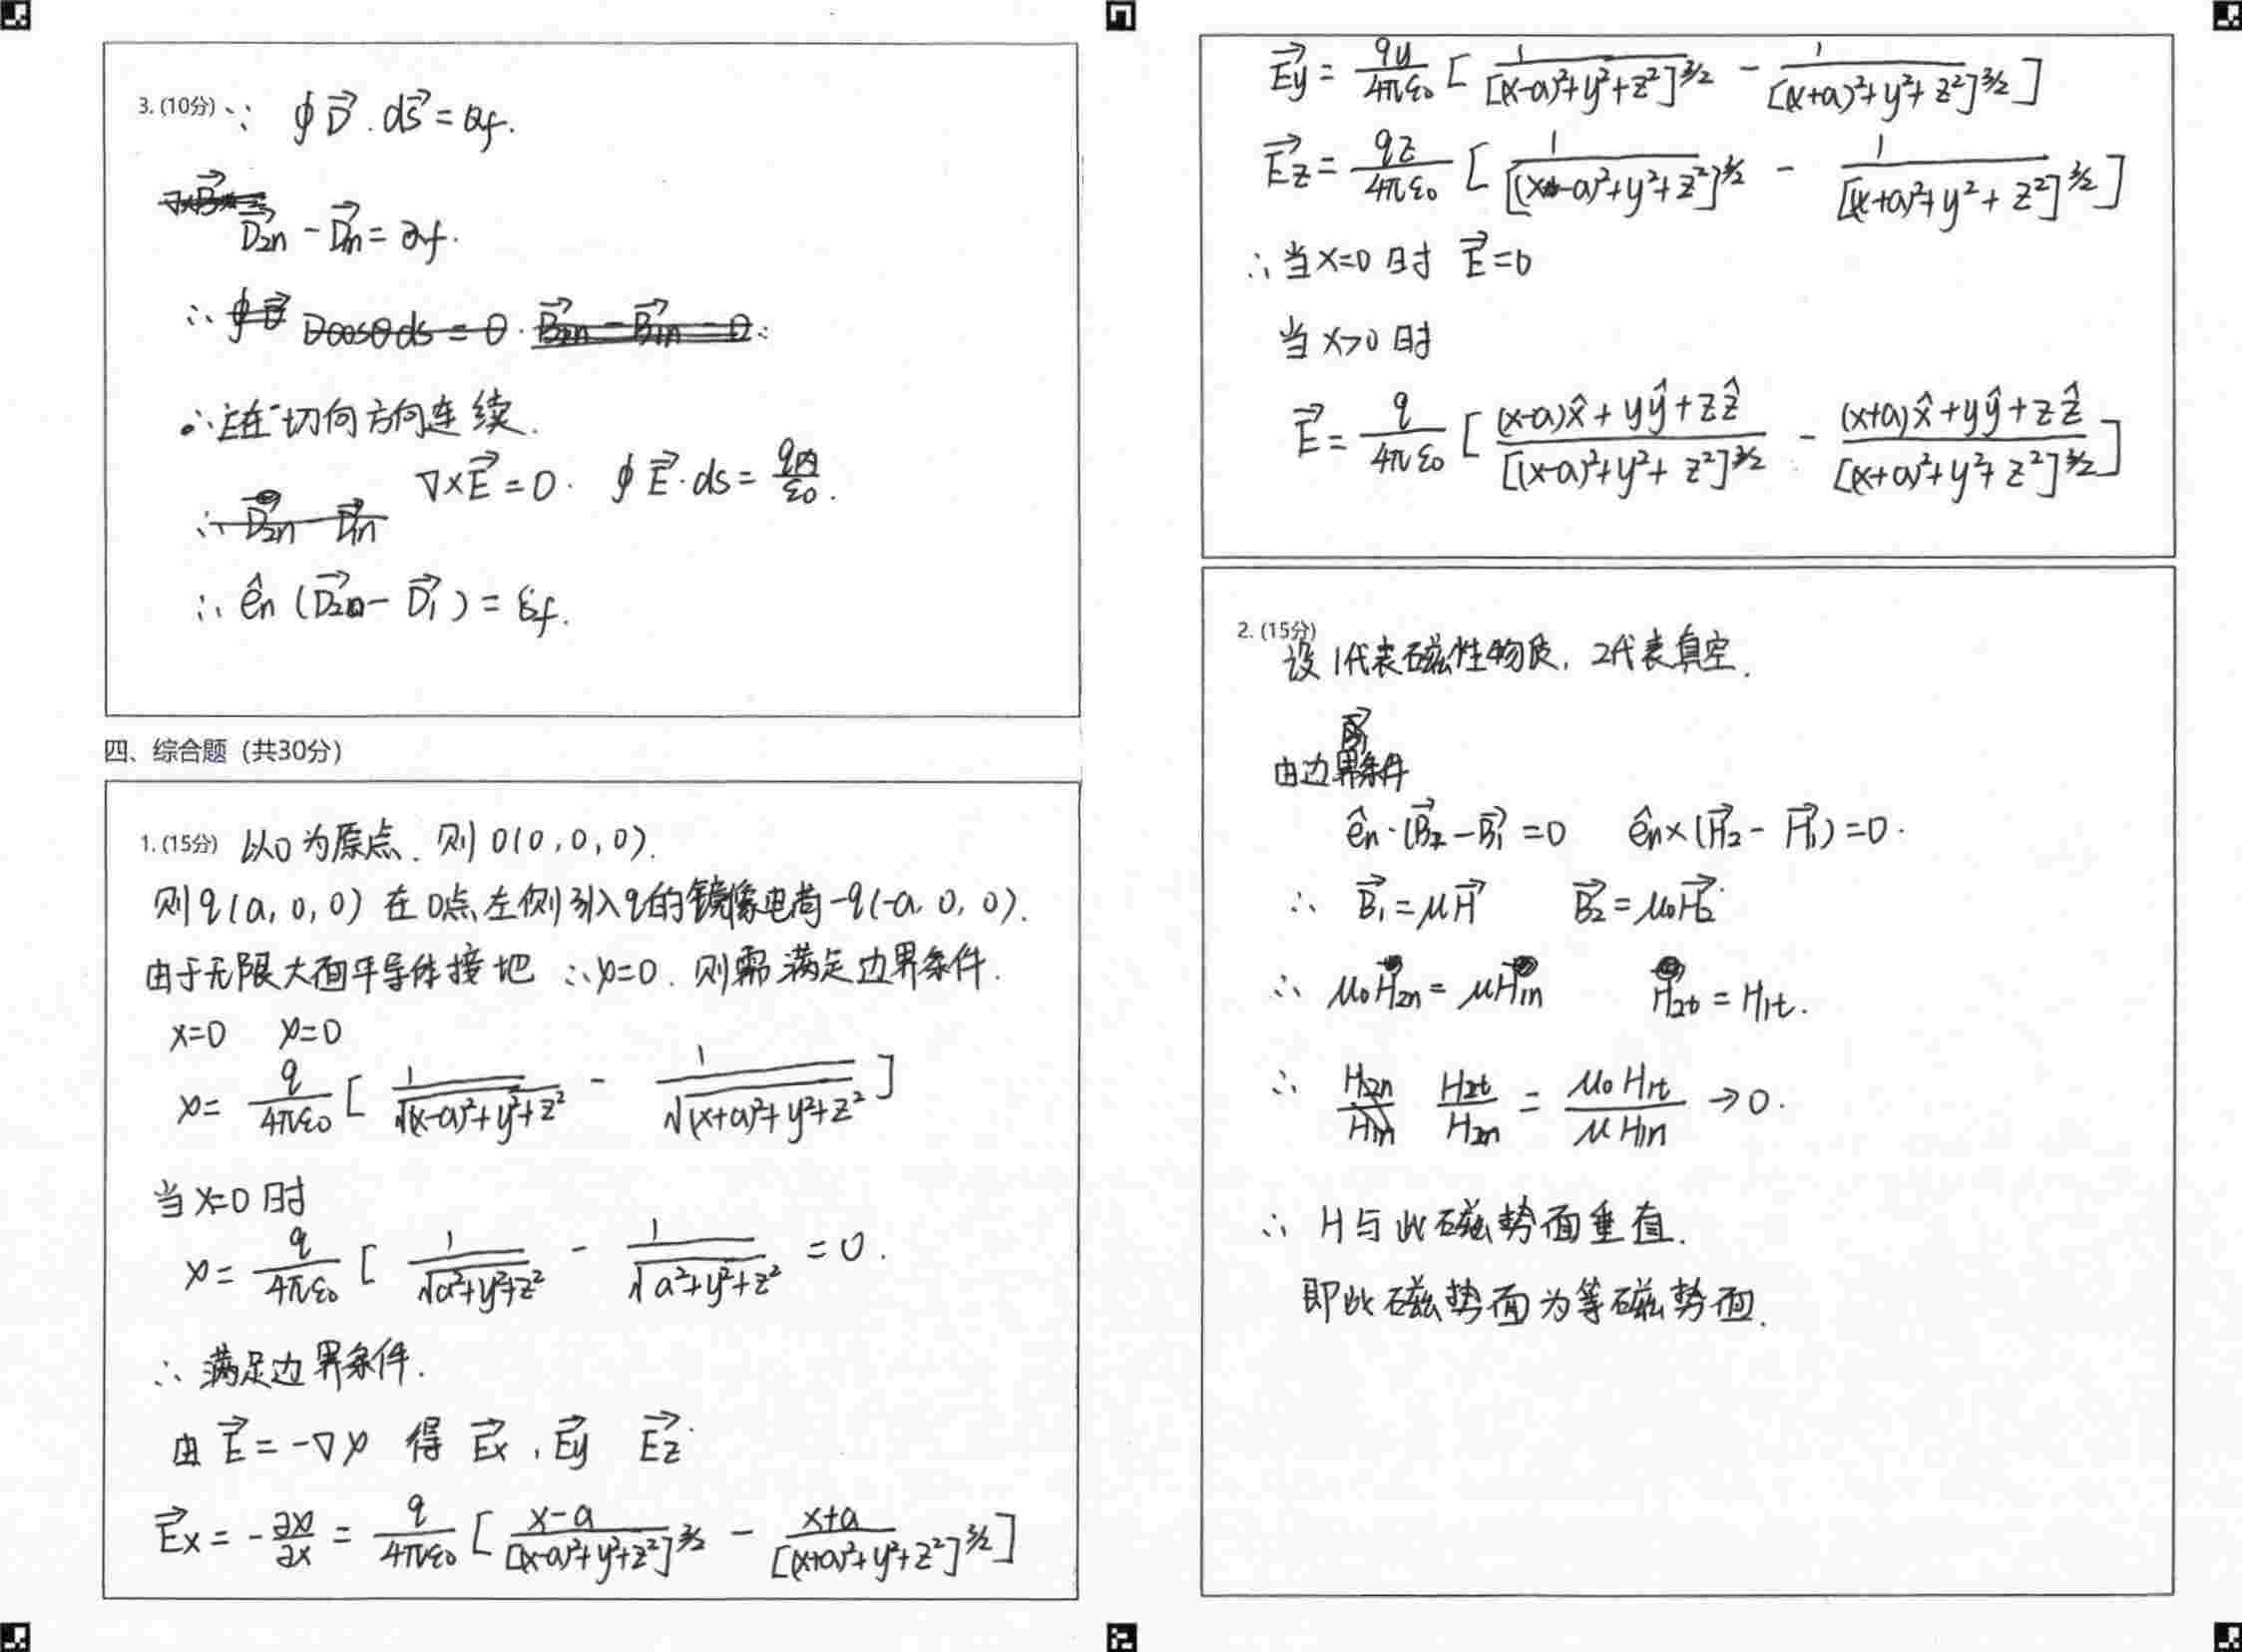 3. (10分) ∵ ∮D⃗·ds⃗ = Qf.
D⃗2n − D⃗1n = Qf.
∴
∴ E在切向方向连续.
∇×E⃗ = 0. ∮E⃗·ds = q内/ε0.
∴ ên (D⃗2 − D⃗1) = εf.
四、综合题（共30分）
1. (15分) 以O为原点. 则O(0,0,0).
则q(a,0,0) 在O点左侧引入q的镜像电荷−q(−a,0,0).
由于无限大面平导体接地 ∴φ=0. 则需满足边界条件.
x=0 φ=0
φ = q/4πε0 [ 1/√(x−a)²+y²+z² − 1/√(x+a)²+y²+z² ]
当x=0时
φ = q/4πε0 [ 1/√a²+y²+z² − 1/√a²+y²+z² = 0.
∴ 满足边界条件.
由 E⃗ = −∇φ 得 E⃗x, E⃗y E⃗z.
E⃗x = −∂φ/∂x = q/4πε0 [ x−a/[(x−a)²+y²+z²]^3/2 − x+a/[(x+a)²+y²+z²]^3/2 ]
E⃗y = qy/4πε0 [ 1/[(x−a)²+y²+z²]^3/2 − 1/[(x+a)²+y²+z²]^3/2 ]
E⃗z = qz/4πε0 [ 1/[(x−a)²+y²+z²]^3/2 − 1/[(x+a)²+y²+z²]^3/2 ]
∴ 当x=0时 E⃗=0
当x>0时
E⃗ = q/4πε0 [ (x−a)x̂+yŷ+zẑ/[(x−a)²+y²+z²]^3/2 − (x+a)x̂+yŷ+zẑ/[(x+a)²+y²+z²]^3/2 ]
2. (15分)
设1代表磁性物质, 2代表真空.
由边界条件
ên·(B⃗2−B⃗1=0 ên×(H⃗2−H⃗1)=0.
∴ B⃗1=μH⃗1 B⃗2=μ0H⃗2
∴ μ0H2n=μH1n H2t=H1t.
∴ H2t/H2n = μ0H1t/μH1n →0.
∴ H与此磁势面垂直.
即此磁势面为等磁势面.